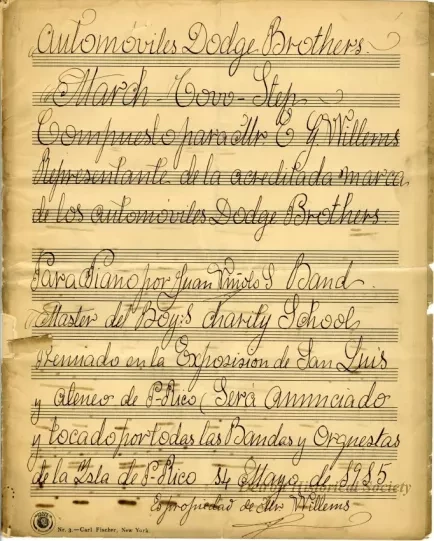 Automóviles Dodge Brothers.
March - Tovo - Step
Compuesto para Mr. E Y Willems
Representante de la acreditada marca
de los automóviles Dodge Brothers.
Para Piano por Juan Viñolo S Band
Master del Boy's Charity School
Premiado en la Exposision de San Luis
y Ateneo de P-Rico (Será Anunciado
y tocado por todas las Bandas y Orquestas
de la Isla de P-Rico 14 Mayo de 1925.
Historical Society
Es propiedad de Mr Willems
Nr. 3.—Carl Fischer, New York.